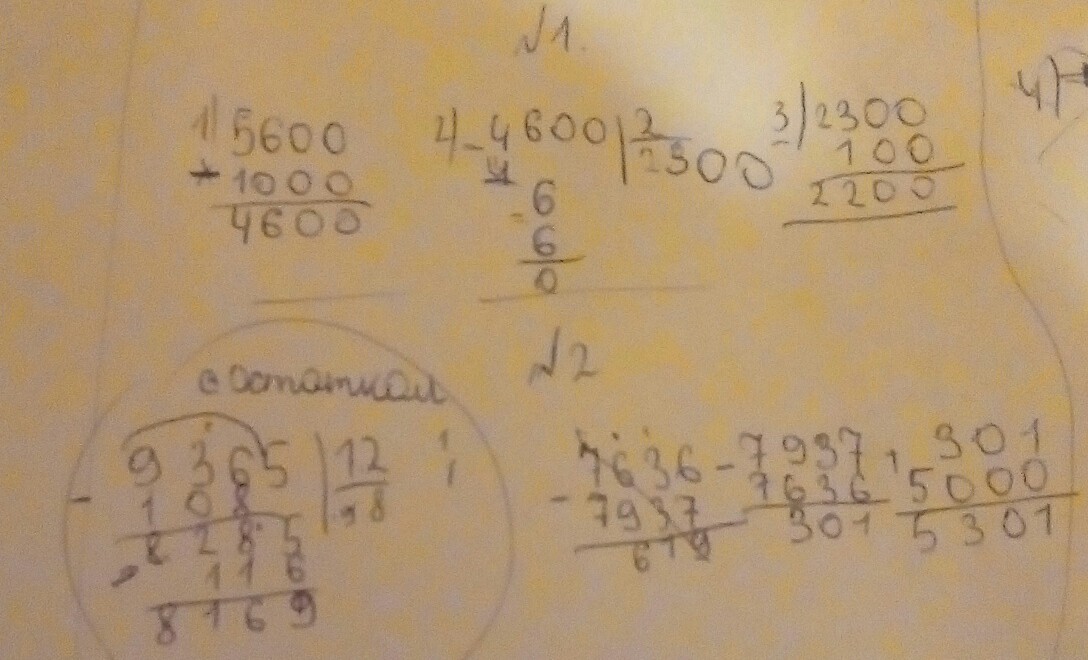 №1.
1) 5600
+ 1000
4600
2) - 4600 | 2
4
2300
- 6
6
0
3) 2300
- 100
2200
4)
№2
с остатком
- 9365 | 12
108
98
8285
- 116
8169
7636
- 7937
619
- 7937
7636
301
+ 301
5000
5301